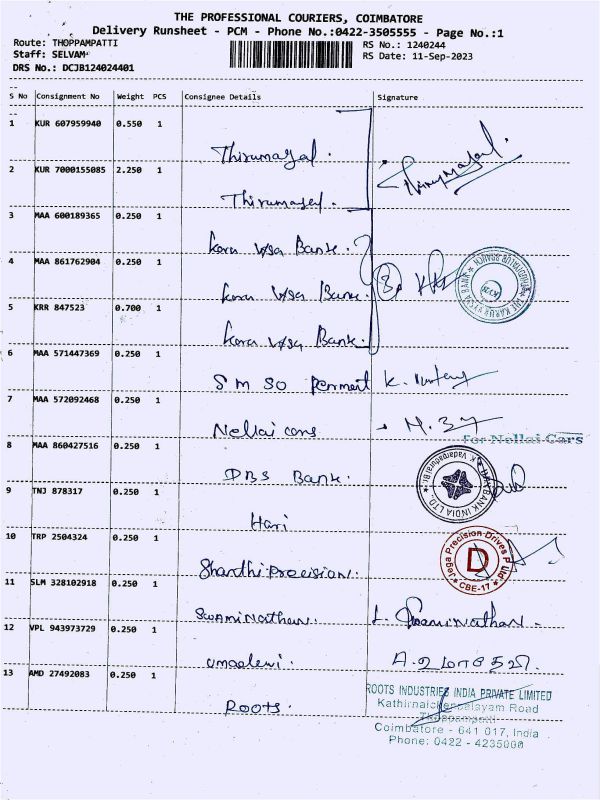 THE PROFESSIONAL COURIERS, COIMBATORE
Delivery Runsheet - PCM - Phone No.:0422-3505555 - Page No.:1
Route: THOPPAMPATTI
RS No.: 1240244
Staff: SELVAM
RS Date: 11-Sep-2023
DRS No.: DCJB124024401
S No Consignment No Weight PCS Consignee Details Signature
1 KUR 607959940 0.550 1
Thirumagal.
2 KUR 7000155085 2.250 1
Thirumagal.
3 MAA 600189365 0.250 1
Bank.
4 MAA 861762904 0.250 1
Bank.
THE KARUR VYSYA BANK
5 KRR 847523 0.700 1
Bank.
6 MAA 571447369 0.250 1
S M SO
7 MAA 572092468 0.250 1
Nellai cars
For Nellai Cars
8 MAA 860427516 0.250 1
DBS Bank.
BANK INDIA LTD.
9 TNJ 878317 0.250 1
Hari
10 TRP 2504324 0.250 1
Shanthi precision.
Jega Precision Drives P Ltd
D
CBE-17
11 SLM 328102918 0.250 1
Swaminathan. L. Swaminathan.
12 VPL 943973729 0.250 1
umadevi. A. உமாதேவி.
13 AMD 27492083 0.250 1
Roots.
ROOTS INDUSTRIES INDIA PRIVATE LIMITED
Kathirnaickenpalayam Road
Thoppampatti
Coimbatore - 641 017, India
Phone: 0422 - 4235000